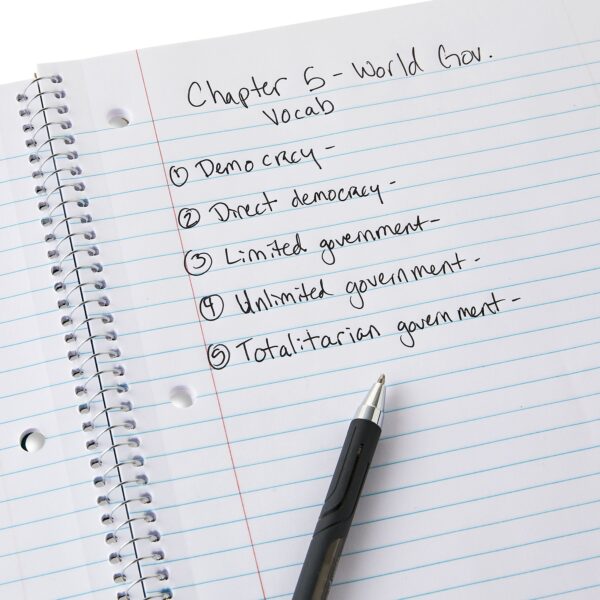 Chapter 5 - World Gov.
Vocab
① Democracy -
② Direct democracy -
③ Limited government -
④ Unlimited government -
⑤ Totalitarian government -